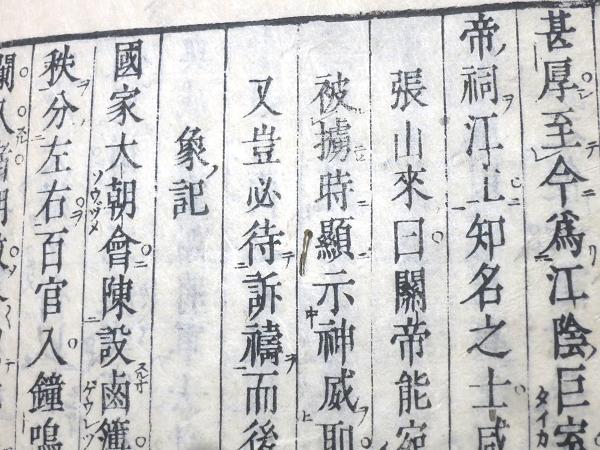 甚厚至今爲江陰巨室
帝祠江上知名之士咸
張山來曰關帝能
被擄時顯示神威
又豈必待訴禱而後
象記
國家大朝會陳設鹵簿
秩分左右百官入鐘鳴